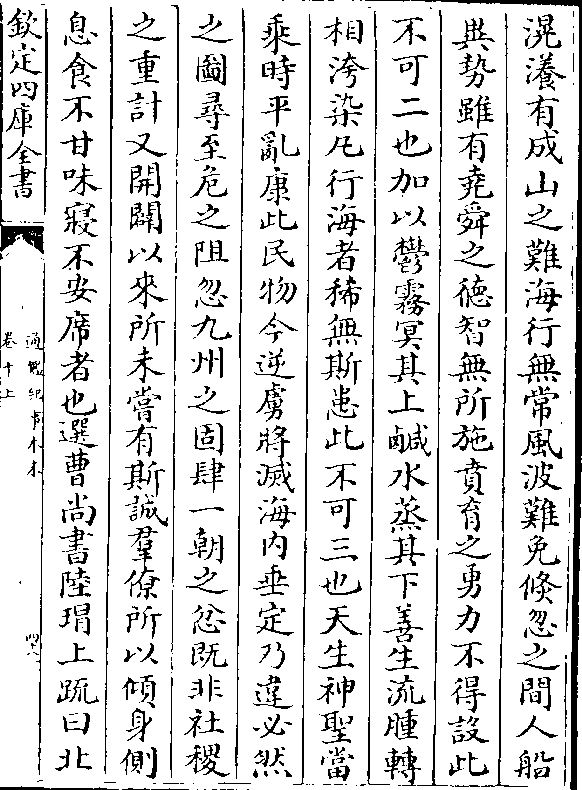 滉瀁有成山之難海行無常風波難免倐忽之間人船
異勢雖有堯舜之徳智無所施賁育之勇力不得設此
不可二也加以鬱霧冥其上鹹水蒸其下善生流腫轉
相洿染凡行海者稀無斯患此不可三也天生神聖當
乗時平亂康此民物今逆虜將滅海内垂定乃違必然
之圖尋至危之阻忽九州之固肆一朝之忿既非社稷
之重計又開闢以來所未嘗有斯誠羣僚所以傾身側
息食不甘味寢不安席者也選曹尚書陸瑁上疏曰北
欽定四庫全書
通鑑紀事本末
卷十上